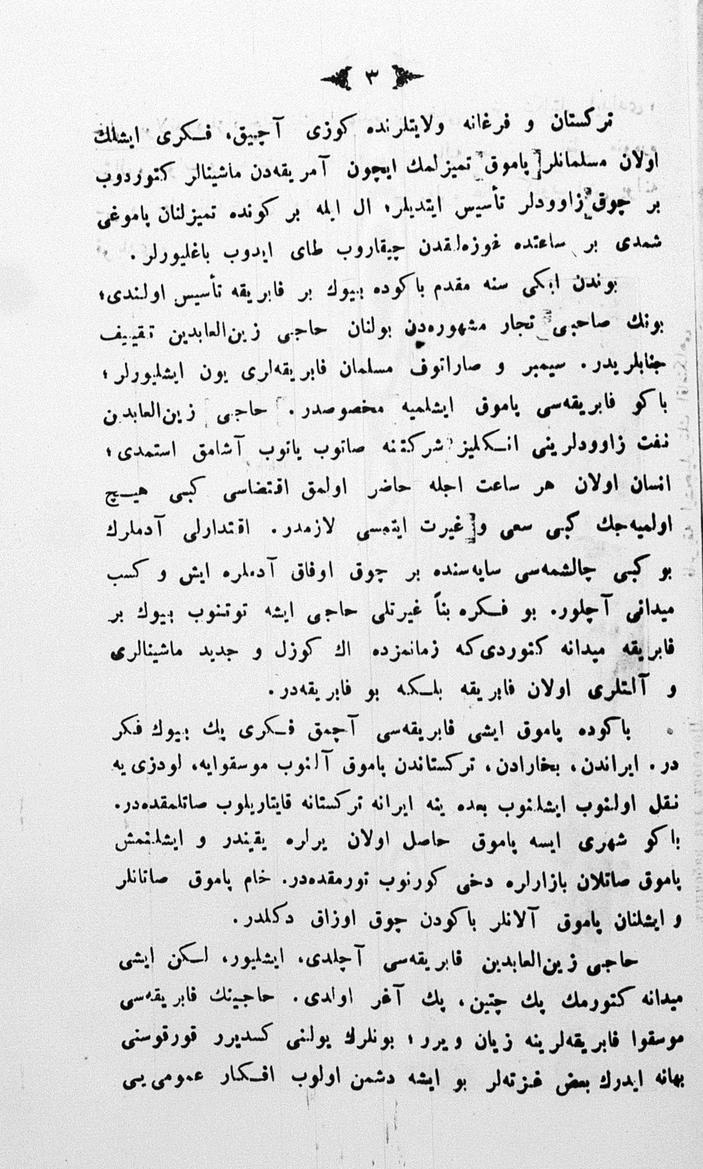 ٣
تركستان و فرغانه ولايتلرنده كوزى آچيق، فكرى ايشلك
اولان مسلمانلر پاموق تميزلمك ايچون آمريقه‌دن ماشينالر كتوردوب
بر چوق زاوودلر تأسيس ايتديلر؛ ال ايله بر كونده تميزلنان پاموغى
شمدى بر ساعتده غوزه‌لقدن چيقاروب طاى ايدوب باغليورلر.
بوندن ايكى سنه مقدم باكوده بيوك بر فابريقه تأسيس اولندى؛
بونك صاحبى تجار مشهوره‌دن بولنان حاجى زين‌العابدين تقييف
جنابلريدر. سيمبر و صاراتوف مسلمان فابريقه‌لرى يون ايشليورلر؛
باكو فابريقه‌سى پاموق ايشلميه مخصوصدر. حاجى زين‌العابدين
نفت زاوودلرينى انكليز شركتنه صاتوب ياتوب آشامق استمدى؛
انسان اولان هر ساعت اجله حاضر اولمق اقتضاسى كبى هيچ
اولميه‌جك كبى سعى و غيرت ايتمسى لازمدر. اقتدارلى آدملرك
بو كبى چالشمه‌سى سايه‌سنده بر چوق اوفاق آدملره ايش و كسب
ميدانى آچلور. بو فكره بناً غيرتلى حاجى ايشه توتنوب بيوك بر
فابريقه ميدانه كتوردى‌كه زمانمزده اك كوزل و جديد ماشينالرى
و آلتلرى اولان فابريقه بلكه بو فابريقه‌در.
باكوده پاموق ايشى فابريقه‌سى آچمق فكرى پك بيوك فكر
در. ايراندن، بخارادن، تركستاندن پاموق آلنوب موسقوايه، لودزى‌يه
نقل اولنوب ايشلنوب بعده ينه ايرانه تركستانه قايتاريلوب صاتلمقده‌در.
باكو شهرى ايسه پاموق حاصل اولان يرلره يقيندر و ايشلنمش
پاموق صاتلان بازارلره دخى كورنوب تورمقده‌در. خام پاموق صاتانلر
و ايشلنان پاموق آلانلر باكودن چوق اوزاق دكلدر.
حاجى زين‌العابدين فابريقه‌سى آچلدى، ايشليور، لكن ايشى
ميدانه كتورمك پك چتين، پك آغر اولدى. حاجينك فابريقه‌سى
موسقوا فابريقه‌لرينه زيان ويرر؛ بونلرك يولنى كسديرو قورقوسنى
بهانه ايدرك بعض غزته‌لر بو ايشه دشمن اولوب افكار عمومى‌يى